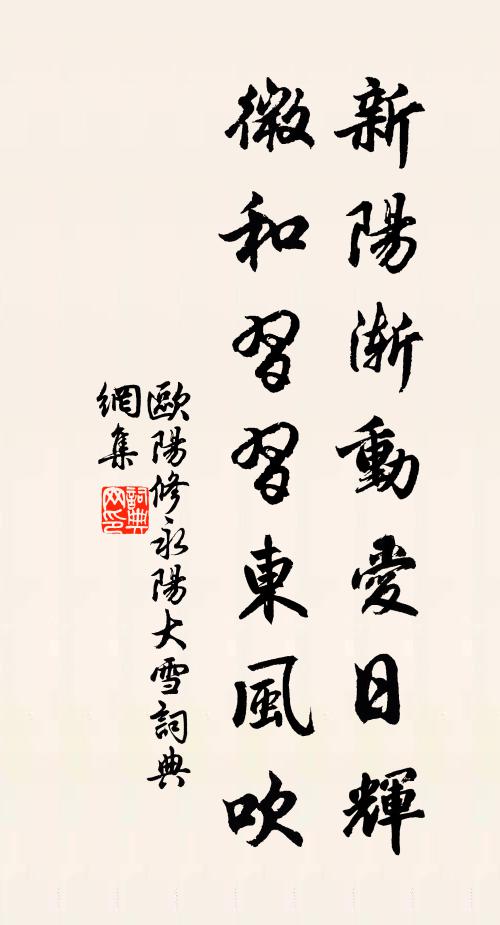 新陽漸動愛日輝
微和習習東風吹
歐陽修永陽大雪詞典
網集
詞典
网印